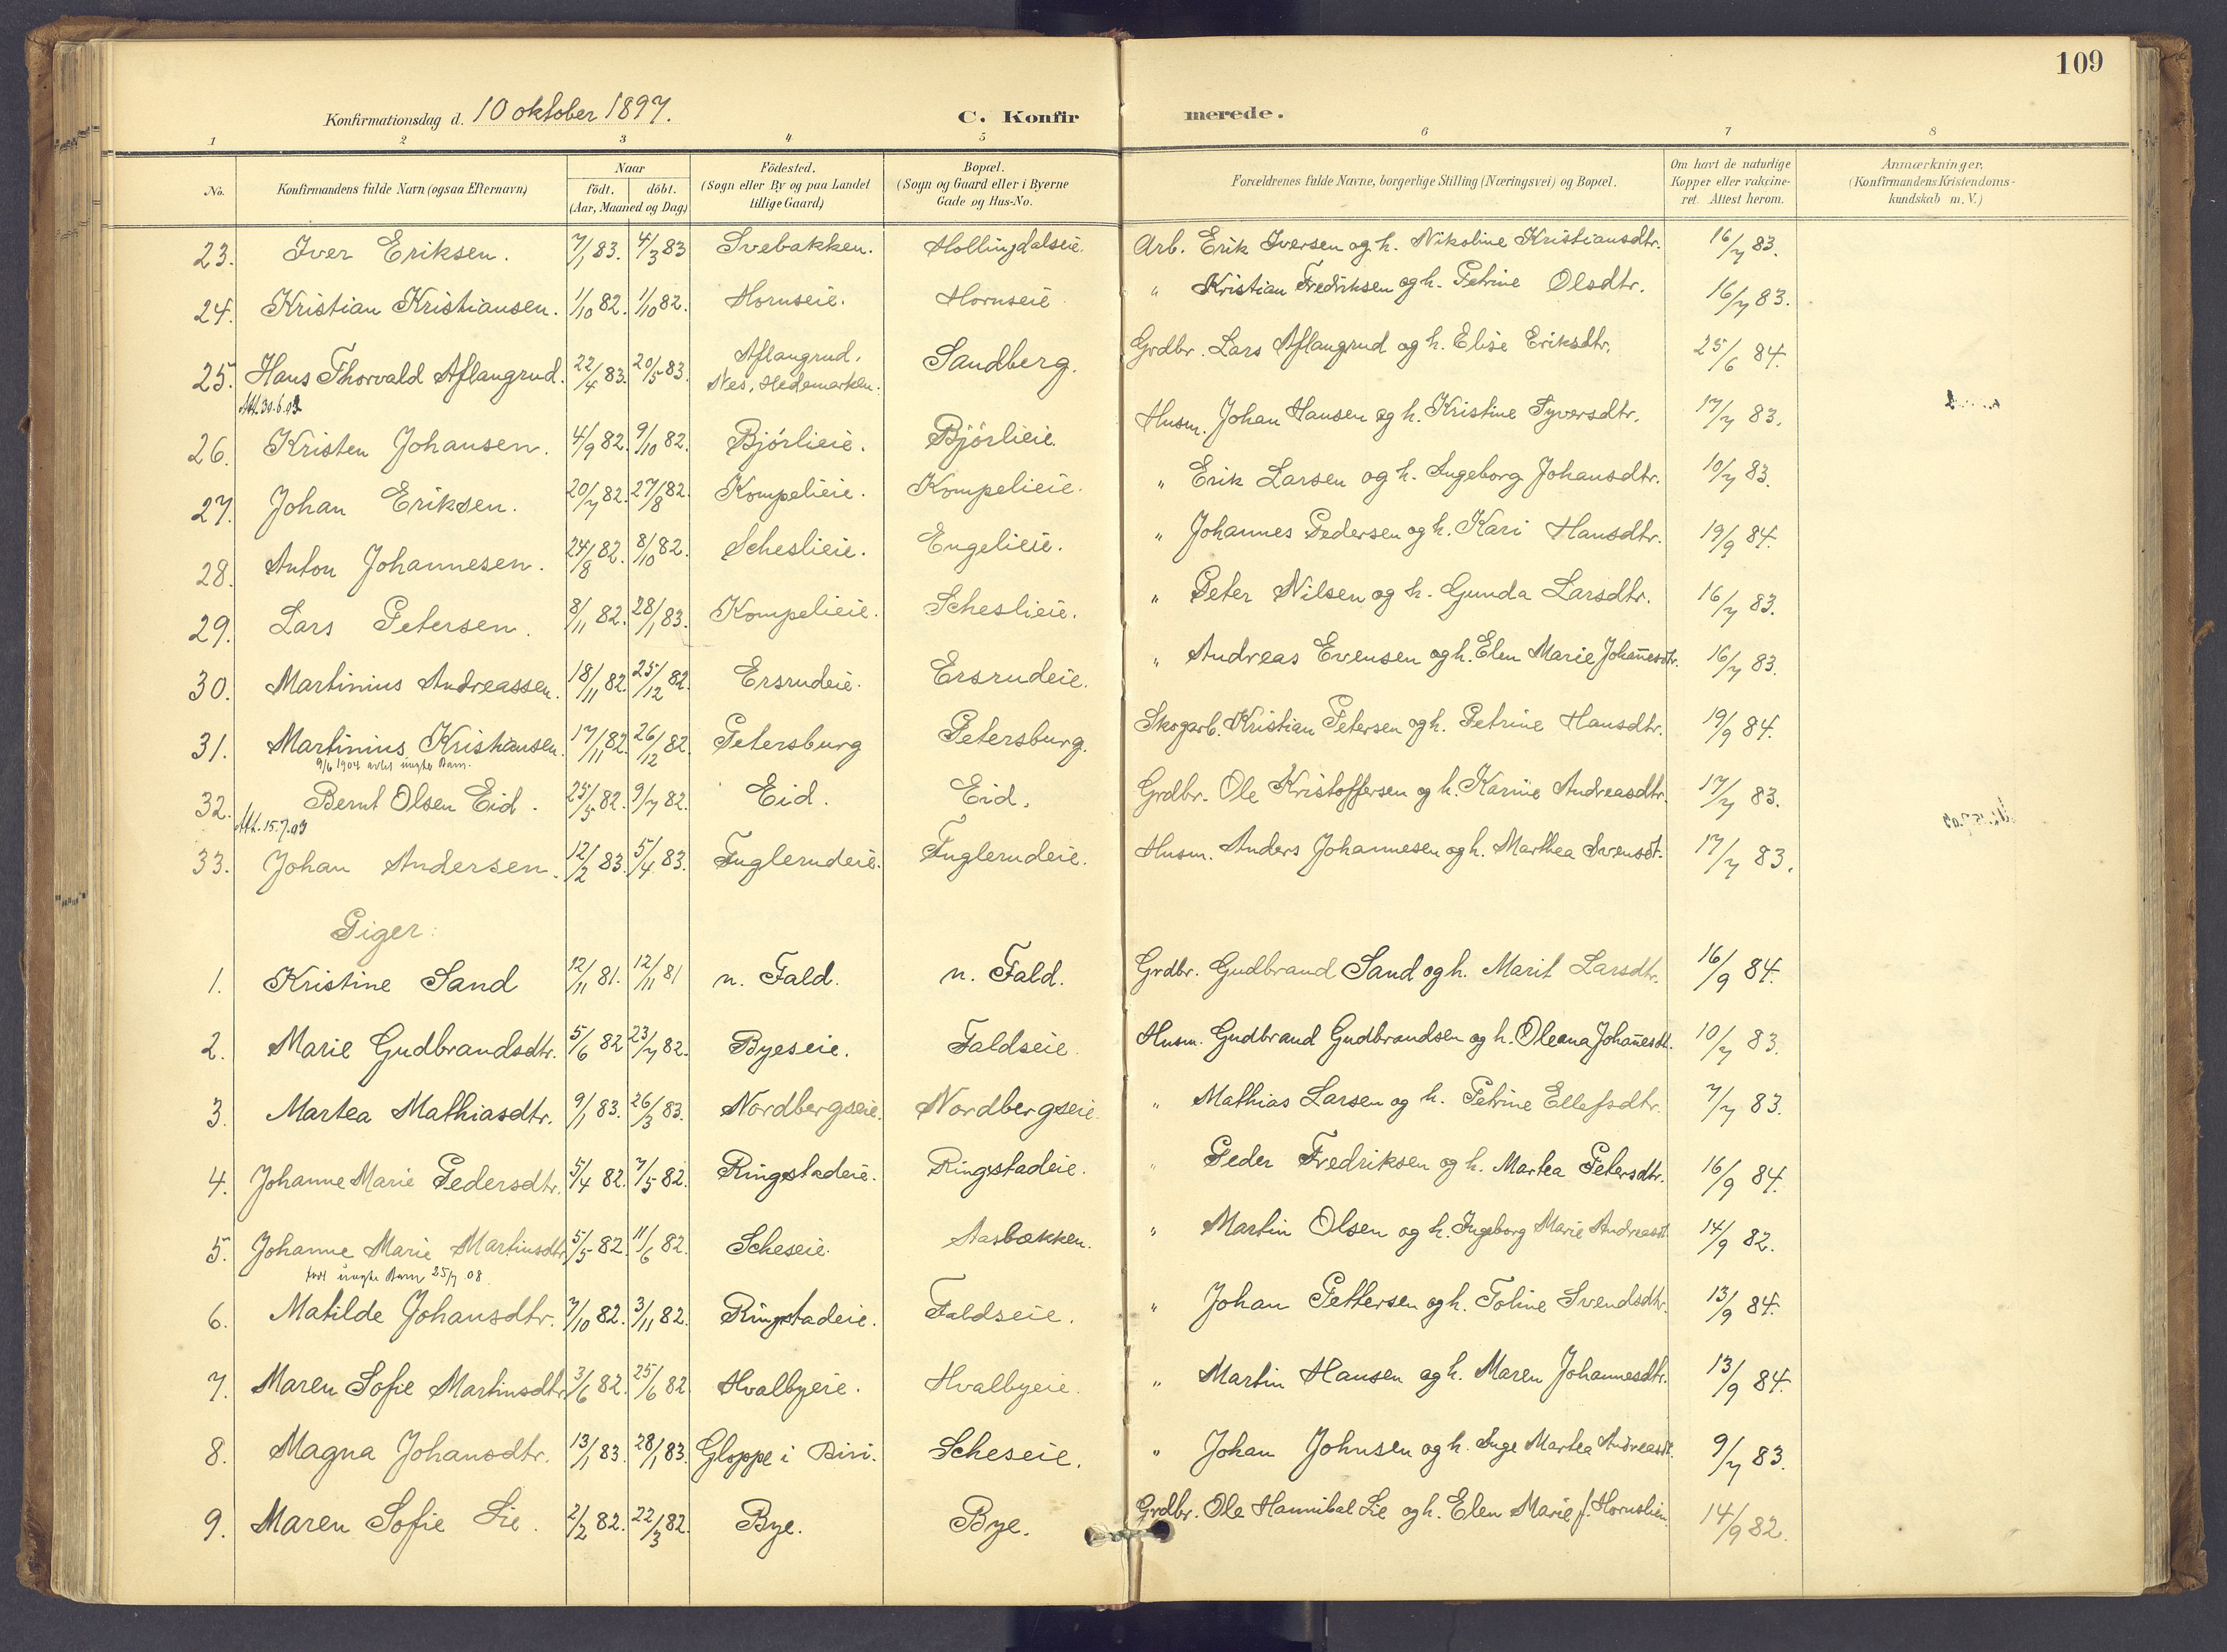 109
Konfirmationsdag d. 10 oktober 1897.
C. Konfirmerede.
1 2 3 4 5 6 7 8
No.
Konfirmandens fulde Navn (ogsaa Efternavn)
Naar
födt. döbt.
(Aar, Maaned og Dag)
Födested.
(Sogn eller By og paa Landet
tillige Gaard)
Bopæl.
(Sogn og Gaard eller i Byerne
Gade og Hus-No.
Forældrenes fulde Navne, borgerlige Stilling (Næringsvei) og Bopæl.
Om havt de naturlige
Kopper eller vakcine-
ret Attest herom.
Anmærkninger.
(Konfirmandens Kristendoms-
kundskab m. V.)
23. Iver Eriksen. 7/1 83. 4/3 83 Svebakken. Hollingdalseie. Arb. Erik Iversen og h. Nikoline Kristiansdtr. 16/7 83.
24. Kristian Kristiansen. 1/10 82. 1/10 82. Hornseie. Hornseie " Kristian Fredriksen og h. Petrine Olsdtr. 16/7 83.
25. Hans Thorvald Aflangrud. 22/4 83. 20/5 83. Aflangrud, Nes, Hedemarken. Sandberg. Grdbr. Lars Aflangrud og h. Elise Eriksdtr. 25/6 84.
Att. 30.6.03
26. Kristen Johansen. 4/9 82. 9/10 82. Bjórlieie. Bjórlieie. Husm. Johan Hansen og h. Kristine Syversdtr. 17/7 83.
27. Johan Eriksen. 20/7 82. 27/8 82. Kompelieie. Kompelieie. " Erik Larsen og h. Ingeborg Johansdtr. 10/7 83.
28. Anton Johannesen. 24/8 82. 8/10 82. Scheslieie. Engelieie. " Johannes Pedersen og h. Kari Hansdtr. 19/9 84.
29. Lars Petersen. 8/11 82. 28/1 83. Kompelieie. Scheslieie. " Peter Nilsen og h. Gunda Larsdtr. 16/7 83.
30. Martinius Andreassen. 18/11 82. 25/12 82. Ersrudeie. Ersrudeie. " Andreas Evensen og h. Elen Marie Johannesdtr. 16/7 83.
31. Martinius Kristiansen. 17/11 82. 26/12 82. Petersburg Petersburg. Skogarb. Kristian Petersen og h. Petrine Hansdtr. 19/9 84.
9/6 1904 avlet uægte Barn.
32. Bernt Olsen Eid. 25/5 82. 9/7 82. Eid. Eid. Grdbr. Ole Kristoffersen og h. Karine Andreasdtr. 17/7 83.
Att. 15.7.03
33. Johan Andersen. 12/2 83. 5/4 83. Fuglerudeie. Fuglerudeie. Husm. Anders Johannesen og h. Marthea Svensdt. 17/7 83.
Piger:
1. Kristine Sand 12/11 81. 12/11 81 n. Fald. n. Fald. Grdbr. Gudbrand Sand og h. Marit Larsdtr. 16/9 84.
2. Marie Gudbrandsdtr. 5/6 82 23/7 82. Byeseie. Faldseie Husm. Gudbrand Gudbrandsen og h. Oleana Johannesdt. 10/7 83.
3. Martea Mathiasdtr. 9/1 83. 26/3 83. Nordbergseie. Nordbergseie. " Mathias Larsen og h. Petrine Ellefsdtr. 7/7 83.
4. Johanne Marie Pedersdtr. 5/4 82. 7/5 82. Ringstadeie. Ringstadeie. " Peder Fredriksen og h. Martea Petersdtr. 16/9 84.
5. Johanne Marie Martinsdtr. 5/5 82. 11/6 82. Scheseie. Aasbakken. " Martin Olsen og h. Ingeborg Marie Andreasdt. 14/9 82.
født uægte Barn 25/7 08
6. Matilde Johansdtr. 7/10 82. 3/11 82. Ringstadeie. Faldseie. " Johan Pettersen og h. Toline Svendsdtr. 13/9 84.
7. Maren Sofie Martinsdtr. 3/6 82. 25/6 82 Hvalbyeie. Hvalbyeie. " Martin Hansen og h. Maren Johannesdtr. 13/9 84.
8. Magna Johansdtr. 13/1 83. 28/1 83. Gloppe i Biri. Scheseie. " Johan Johnsen og h. Inge Martea Andreasdt. 9/7 83.
9. Maren Sofie Lie. 2/2 82. 22/3 82. Bye. Bye. Grdbr. Ole Hannibal Lie og h. Elen Marie f. Hornslien. 14/9 82.